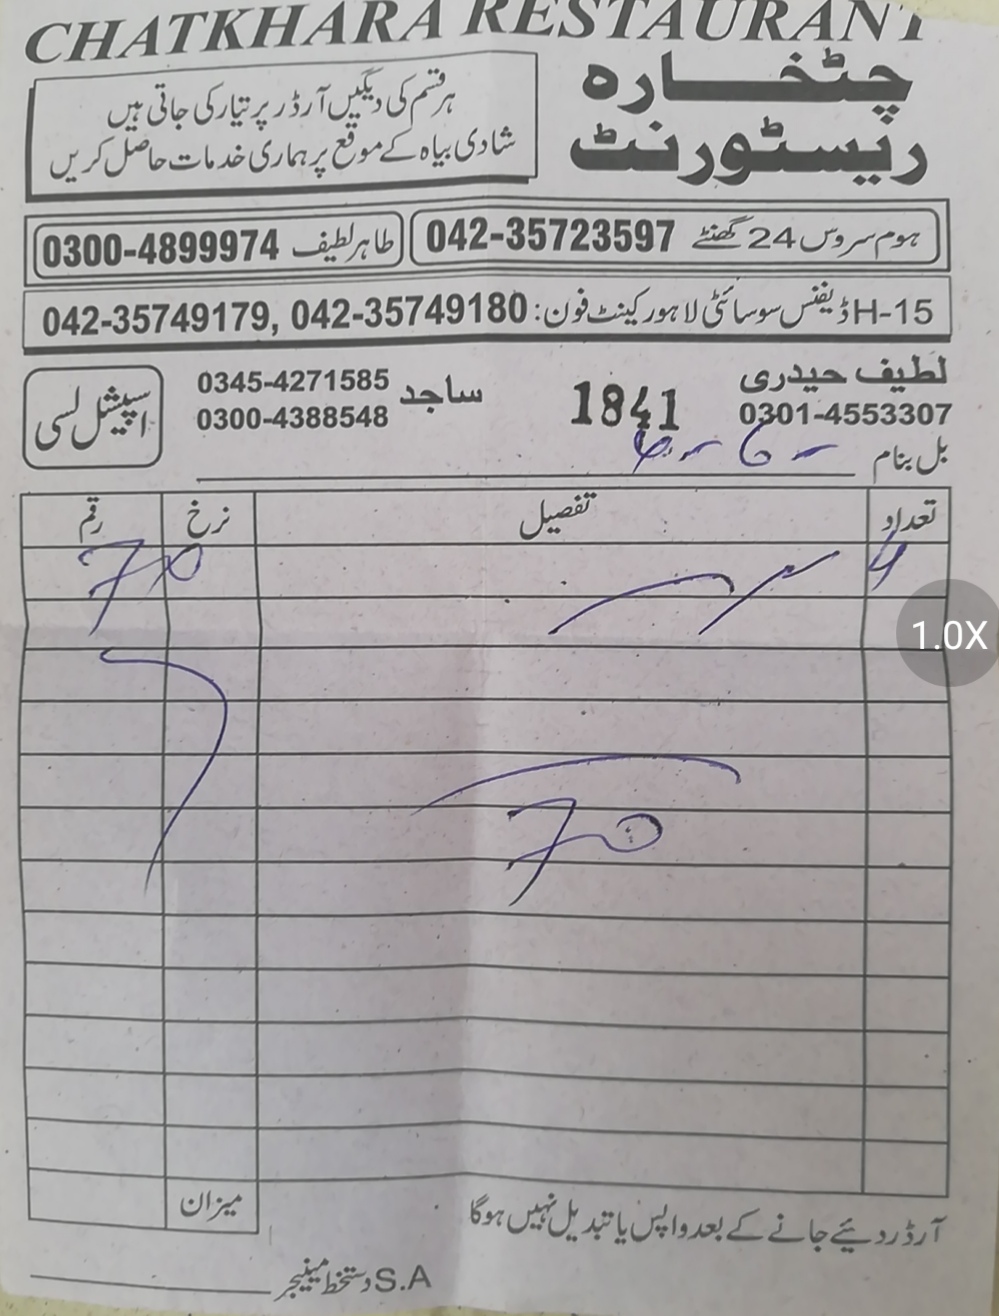 CHATKHARA RESTAURANT
چٹخارہ
ریسٹورنٹ
ہر قسم کی دیگیں آرڈر پر تیار کی جاتی ہیں
شادی بیاہ کے موقع پر ہماری خدمات حاصل کریں
ہوم سروس 24 گھنٹے 042-35723597
طاہر لطیف 0300-4899974
15-H ڈیفنس سوسائٹی لاہور کینٹ فون: 042-35749179, 042-35749180
لطیف حیدری
0301-4553307
1841
ساجد 0345-4271585
0300-4388548
اسپیشل لسی
بل بنام
تعداد تفصیل نرخ رقم
4 70
70
میزان
آرڈر دئیے جانے کے بعد واپس یا تبدیل نہیں ہوگا
S.A دستخط مینیجر
1.0X